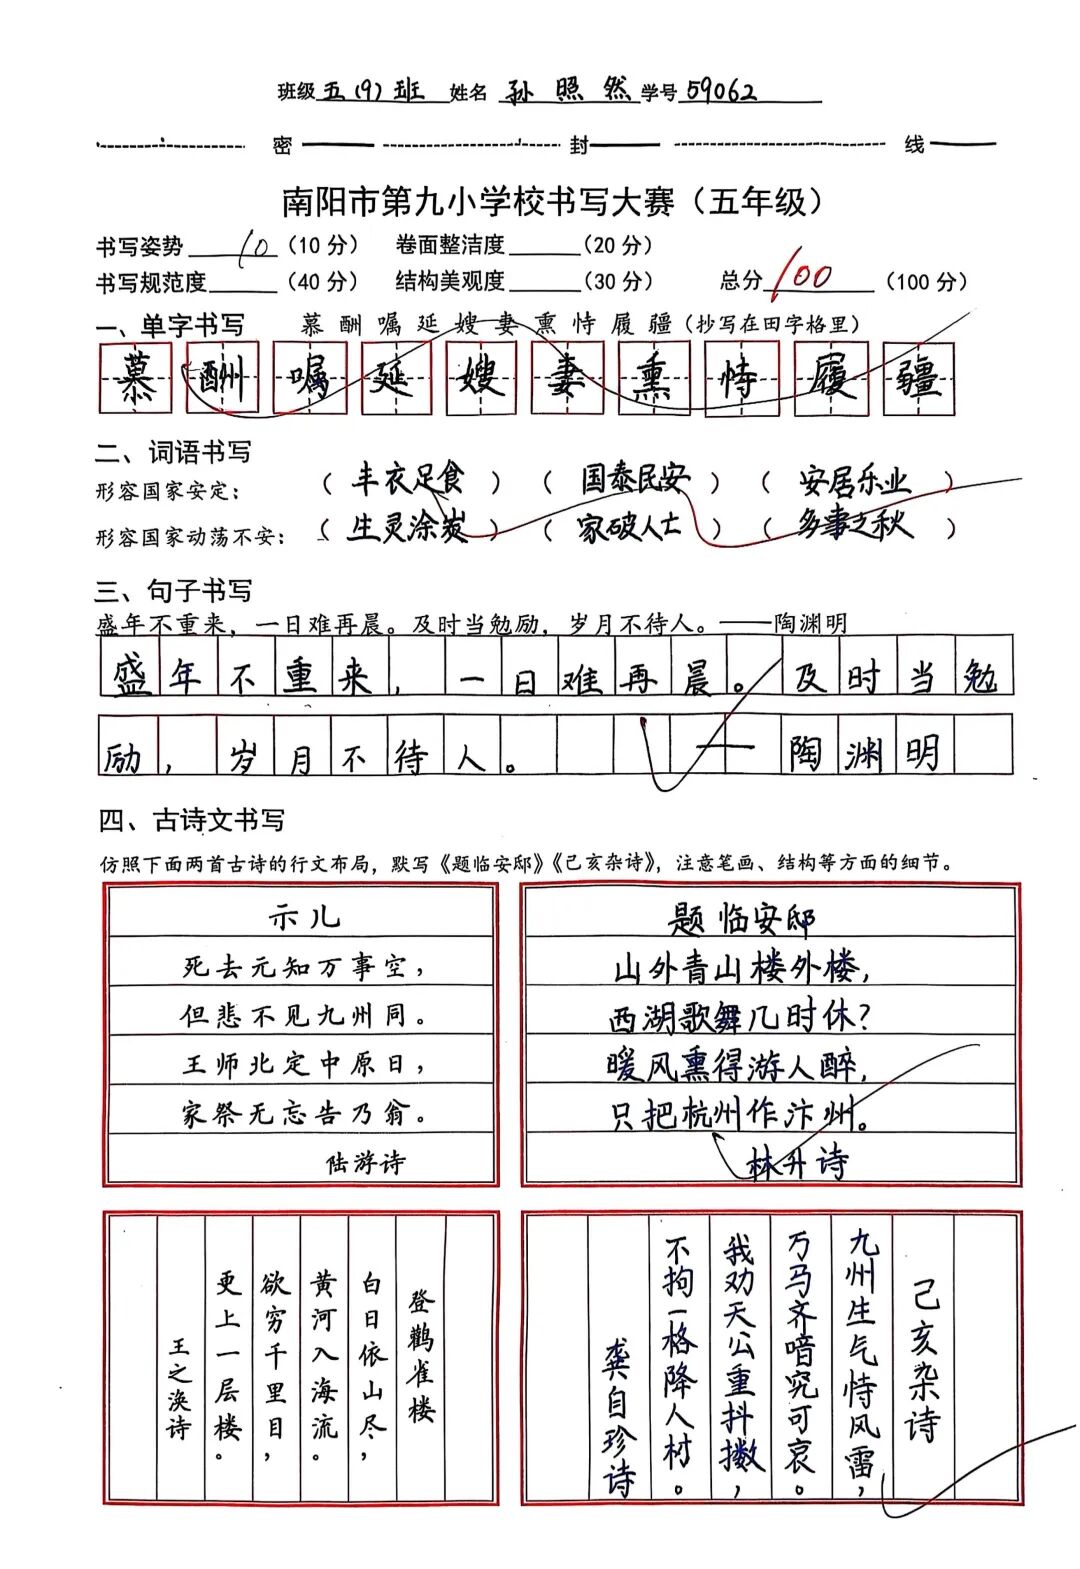 班级 五(9)班 姓名 孙照然 学号 59062
密 封 线
南阳市第九小学校书写大赛（五年级）
书写姿势 10 （10分） 卷面整洁度 （20分）
书写规范度 （40分） 结构美观度 （30分） 总分 100 （100分）
一、单字书写 慕 酬 嘱 延 嫂 妻 熏 恃 履 疆（抄写在田字格里）
慕 酬 嘱 延 嫂 妻 熏 恃 履 疆
二、词语书写
形容国家安定： （丰衣足食） （国泰民安） （安居乐业）
形容国家动荡不安： （生灵涂炭） （家破人亡） （多事之秋）
三、句子书写
盛年不重来，一日难再晨。及时当勉励，岁月不待人。——陶渊明
盛年不重来，一日难再晨。及时当勉
励，岁月不待人。——陶渊明
四、古诗文书写
仿照下面两首古诗的行文布局，默写《题临安邸》《己亥杂诗》，注意笔画、结构等方面的细节。
示儿
死去元知万事空，
但悲不见九州同。
王师北定中原日，
家祭无忘告乃翁。
陆游诗
题临安邸
山外青山楼外楼，
西湖歌舞几时休？
暖风熏得游人醉，
只把杭州作汴州。
林升诗
登鹳雀楼
白日依山尽，
黄河入海流。
欲穷千里目，
更上一层楼。
王之涣诗
己亥杂诗
九州生气恃风雷，
万马齐喑究可哀。
我劝天公重抖擞，
不拘一格降人材。
龚自珍诗